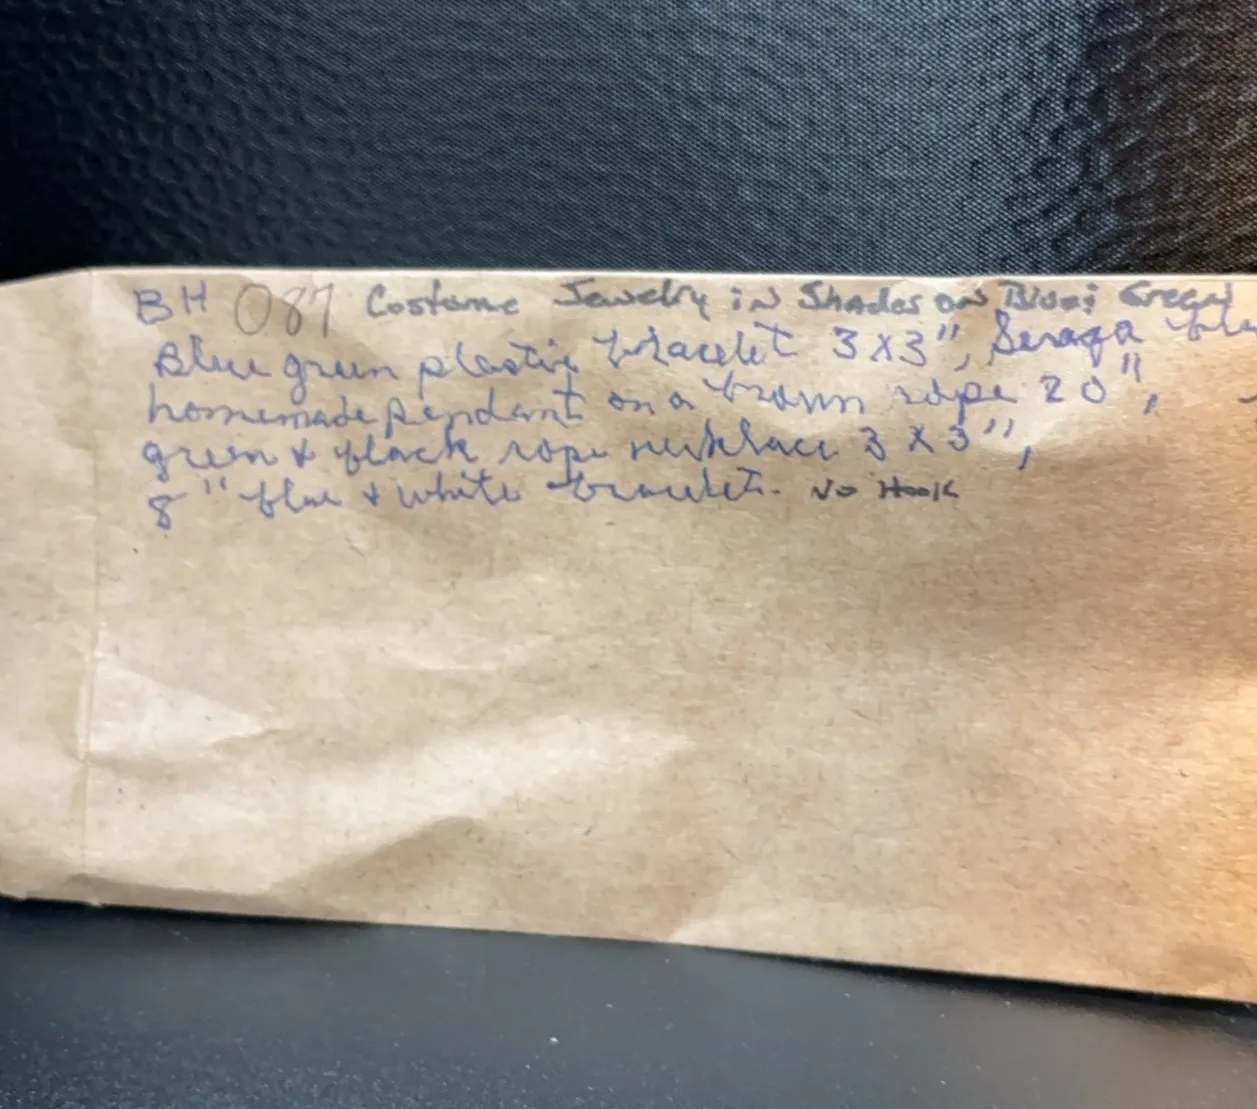 BH 087 Costume Jewelry in Shades on Blue; Green
Blue green plastic bracelet 3x3",
homemade pendant on a brown rope 20",
green & black rope necklace 3x3",
8" blue & white bracelet. No Hook